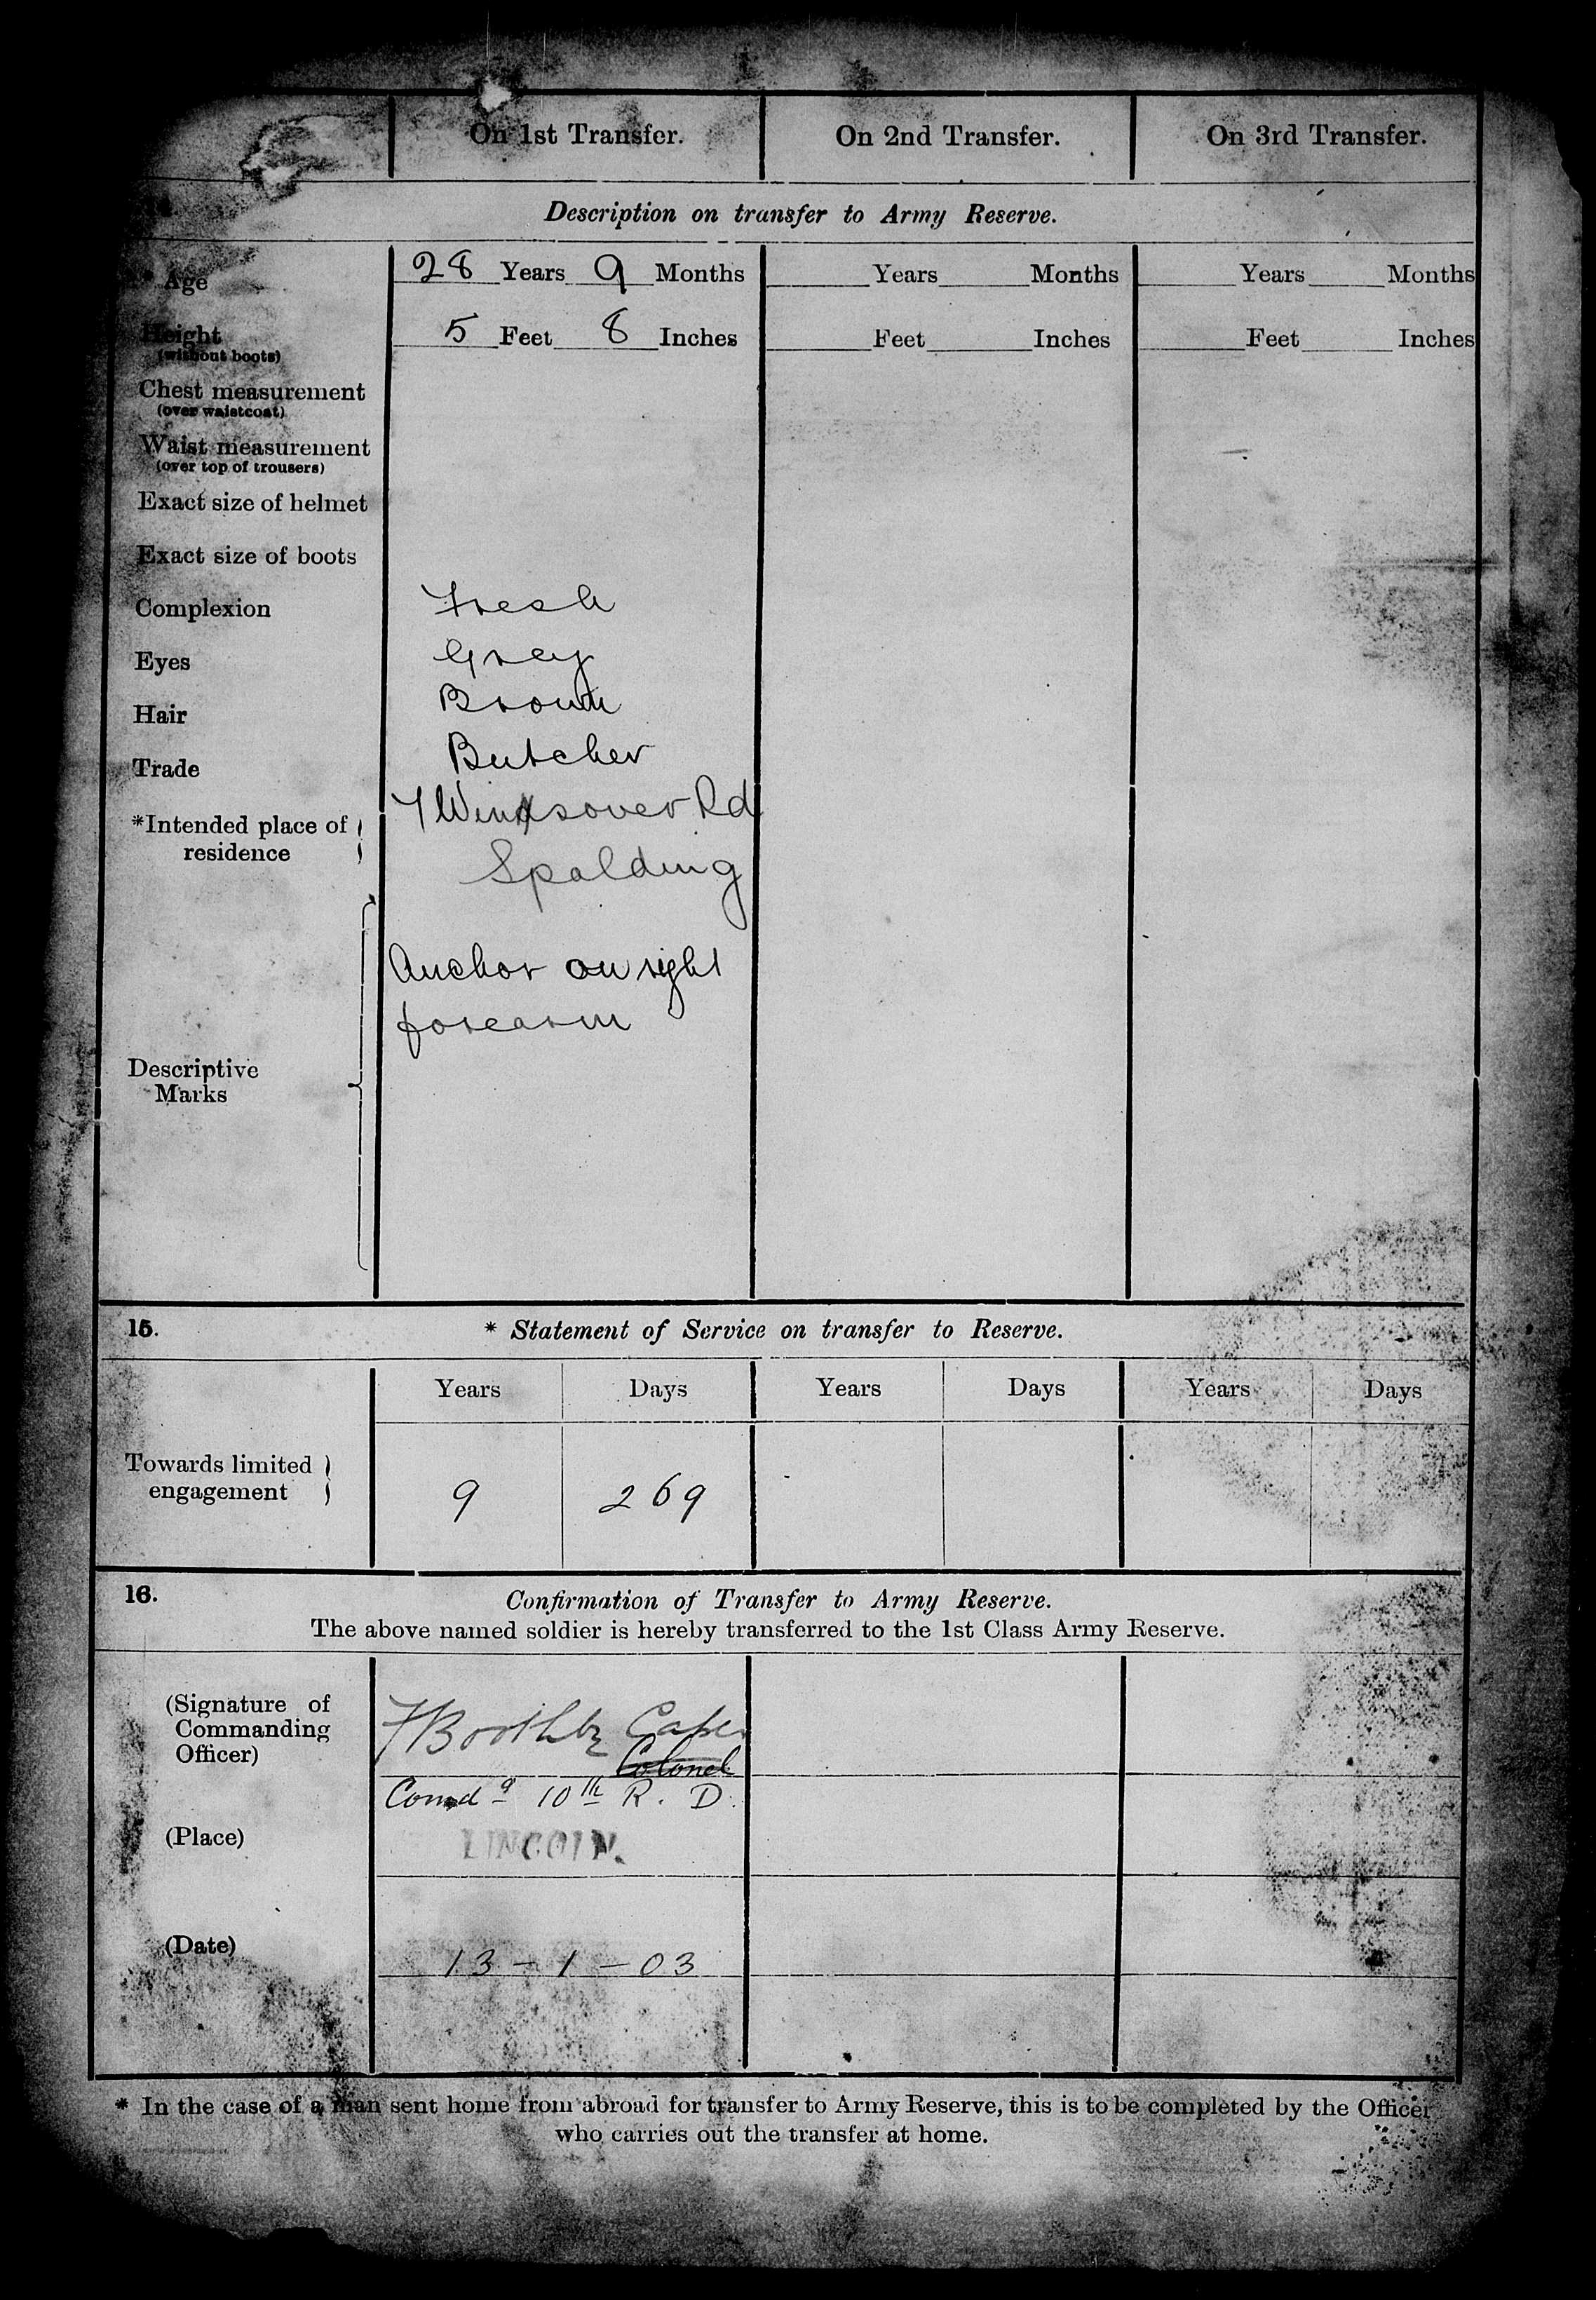 On 1st Transfer. On 2nd Transfer. On 3rd Transfer.
Description on transfer to Army Reserve.
* Age 28 Years 9 Months Years Months Years Months
Height 5 Feet 8 Inches Feet Inches Feet Inches
(without boots)
Chest measurement
(over waistcoat)
Waist measurement
(over top of trousers)
Exact size of helmet
Exact size of boots
Complexion Fresh
Eyes Grey
Hair Brown
Trade Butcher
*Intended place of residence 7 Winsover Rd
Spalding
Descriptive Marks Anchor on right
forearm
15. * Statement of Service on transfer to Reserve.
Years Days Years Days Years Days
Towards limited engagement 9 269
16. Confirmation of Transfer to Army Reserve.
The above named soldier is hereby transferred to the 1st Class Army Reserve.
(Signature of Commanding Officer) Capt
Colonel
Comdg 10th R. D.
(Place) LINCOLN.
(Date) 13 - 1 - 03
* In the case of a man sent home from abroad for transfer to Army Reserve, this is to be completed by the Officer
who carries out the transfer at home.